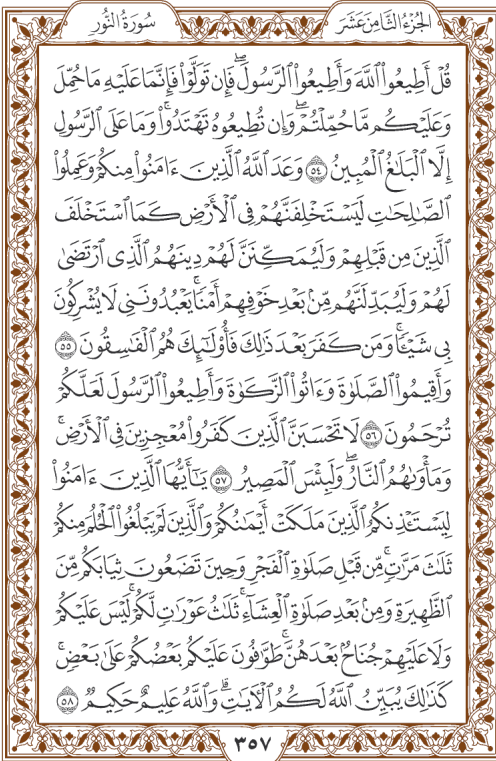 الجُزْءُ الثَّامِنَ عَشَرَ
سُورَةُ النُّورِ
قُلْ أَطِيعُوا۟ ٱللَّهَ وَأَطِيعُوا۟ ٱلرَّسُولَۖ فَإِن تَوَلَّوْا۟ فَإِنَّمَا عَلَيْهِ مَا حُمِّلَ
وَعَلَيْكُم مَّا حُمِّلْتُمْۖ وَإِن تُطِيعُوهُ تَهْتَدُوا۟ۚ وَمَا عَلَى ٱلرَّسُولِ
إِلَّا ٱلْبَلَٰغُ ٱلْمُبِينُ ٥٤ وَعَدَ ٱللَّهُ ٱلَّذِينَ ءَامَنُوا۟ مِنكُمْ وَعَمِلُوا۟
ٱلصَّٰلِحَٰتِ لَيَسْتَخْلِفَنَّهُمْ فِى ٱلْأَرْضِ كَمَا ٱسْتَخْلَفَ
ٱلَّذِينَ مِن قَبْلِهِمْ وَلَيُمَكِّنَنَّ لَهُمْ دِينَهُمُ ٱلَّذِى ٱرْتَضَىٰ
لَهُمْ وَلَيُبَدِّلَنَّهُم مِّنۢ بَعْدِ خَوْفِهِمْ أَمْنًاۚ يَعْبُدُونَنِى لَا يُشْرِكُونَ
بِى شَيْـًٔاۚ وَمَن كَفَرَ بَعْدَ ذَٰلِكَ فَأُو۟لَٰٓئِكَ هُمُ ٱلْفَٰسِقُونَ ٥٥
وَأَقِيمُوا۟ ٱلصَّلَوٰةَ وَءَاتُوا۟ ٱلزَّكَوٰةَ وَأَطِيعُوا۟ ٱلرَّسُولَ لَعَلَّكُمْ
تُرْحَمُونَ ٥٦ لَا تَحْسَبَنَّ ٱلَّذِينَ كَفَرُوا۟ مُعْجِزِينَ فِى ٱلْأَرْضِۚ
وَمَأْوَىٰهُمُ ٱلنَّارُۖ وَلَبِئْسَ ٱلْمَصِيرُ ٥٧ يَٰٓأَيُّهَا ٱلَّذِينَ ءَامَنُوا۟
لِيَسْتَـْٔذِنكُمُ ٱلَّذِينَ مَلَكَتْ أَيْمَٰنُكُمْ وَٱلَّذِينَ لَمْ يَبْلُغُوا۟ ٱلْحُلُمَ مِنكُمْ
ثَلَٰثَ مَرَّٰتٍۚ مِّن قَبْلِ صَلَوٰةِ ٱلْفَجْرِ وَحِينَ تَضَعُونَ ثِيَابَكُم مِّنَ
ٱلظَّهِيرَةِ وَمِنۢ بَعْدِ صَلَوٰةِ ٱلْعِشَآءِۚ ثَلَٰثُ عَوْرَٰتٍ لَّكُمْۚ لَيْسَ عَلَيْكُمْ
وَلَا عَلَيْهِمْ جُنَاحٌۢ بَعْدَهُنَّۚ طَوَّٰفُونَ عَلَيْكُم بَعْضُكُمْ عَلَىٰ بَعْضٍۚ
كَذَٰلِكَ يُبَيِّنُ ٱللَّهُ لَكُمُ ٱلْءَايَٰتِۗ وَٱللَّهُ عَلِيمٌ حَكِيمٌ ٥٨
٣٥٧